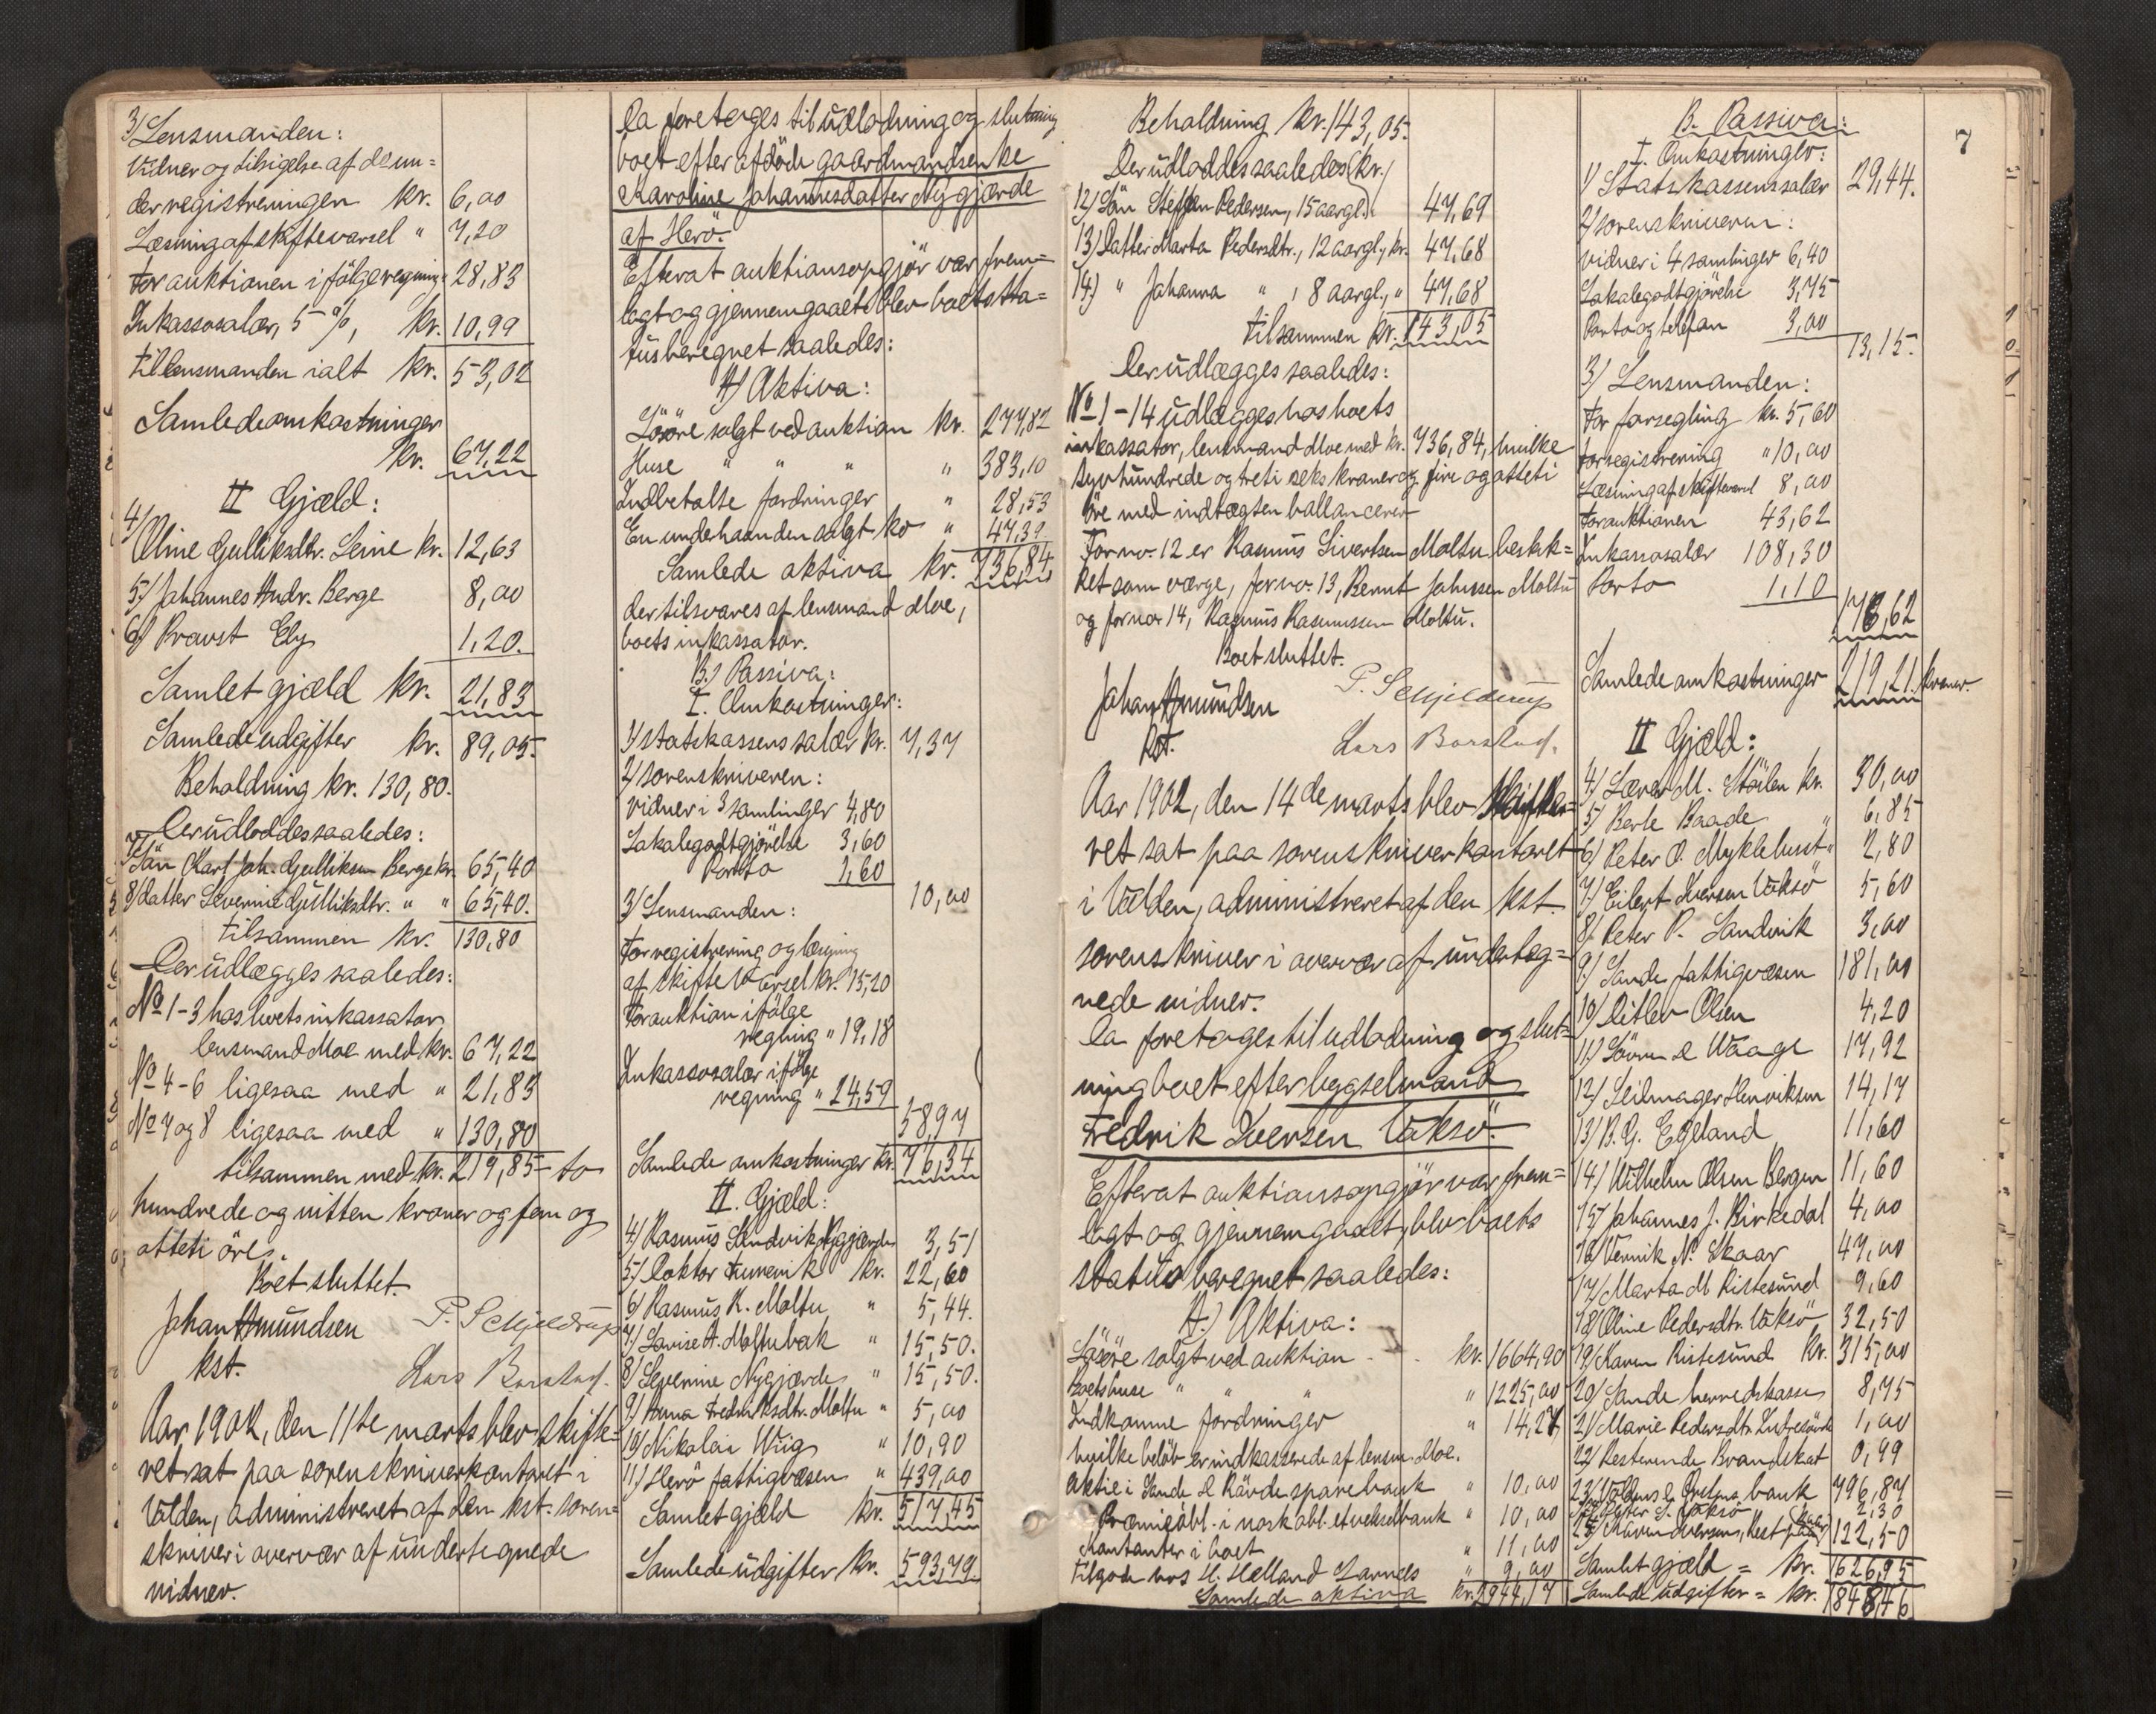 3/ Lensmanden:
Vidner og tilsigelse af de un=
der registreringen kr. 6,00
Læsning af skiftevarsel " 7,20
For auktionen ifølge regning " 28,83
Inkassosalær, 5 %, kr. 10,99
til lensmanden ialt kr. 53,02
Samlede omkostninger
kr. 67,22
II Gjæld:
4/ Oline Gulliksdtr. Leine kr. 12,63
5/ Johannes Andr. Berge 8,00
6/ Provst Ely 1,20.
Samlet gjæld kr. 21,83
Samlede udgifter kr. 89,05.
Behaldning kr. 130,80.
Der udloddes saaledes:
7/ Søn Karl Joh. Gulliksen Berge kr. 65,40
8/ datter Severine Gulliksdtr. " " 65,40.
tilsammen kr. 130,80
Der udlægges saaledes:
No 1-3 hos boets inkassator
lensmand Moe med kr. 67,22
No 4-6 ligesaa med " 21,83
No 7 og 8 ligesaa med " 130,80
tilsammen med kr. 219,85 - to
hundrede og nitten kroner og fem og
otteti øre.
Boet sluttet.
Johan Amundsen P. Schjeldrup
kst. Lars Barstad.
Aar 1902, den 11te marts blev skifte=
ret sat paa sorenskriverkontoret i
Volden, administreret af den kst. soren=
skriver i overvær af undertegnede
vidner.
Da foretoges til udlodning og slutning
boet efter afdøde gaardmandsenke
Karoline Johannesdatter Nygjærde
af Herø.
Efterat auktionsopgjør var frem=
lagt og gjennemgaaet blev boets sta=
tus beregnet saaledes:
A) Aktiva:
Løsøre solgt ved auktion kr. 277,82
Huse " " " " 383,10
Indbetalte fordringer " 28,53
En underhaanden solgt ko " 47,39
Samlede aktiva kr. 736,84
der tilsvares af lensmand Moe,
boets inkassator.
B.) Passiva:
I. Omkostninger:
1/ statskassens salær kr. 7,37
2/ sorenskriveren:
vidner i 3 samlinger 4,80
Lokalegodtgjørelse 3,60
Porto 1,60
10,00
3/ Lensmanden:
For registrering og læsning
af skiftevarsel kr. 15,20
For auktion ifølge
regning " 19,18
Inkassosalær ifølge
regning " 24,59
58,97
Samlede omkostninger kr. 76,34
II. Gjæld:
4/ Rasmus Sandvik Nygjærde 3,51
5/ Doktor kr. 22,60
6/ Rasmus K. Moltu " 5,44.
7/ Lovise A. Moltubak " 15,50.
8/ Severine Nygjærde " 15,50.
9/ Anna Fedriksdtr. Moltu " 5,00
10/ Nikolai Wiig " 10,90
11/ Herø fattigvæsen " 439,00
Samlet gjæld kr. 517,45
Samlede udgifter kr. 593,79.
Behaldning kr. 143,05.
Der udloddes saaledes (kr.)
12) Søn Steffen Pedersen, 15 aar gl. 47,69
13) Datter Marta Pedersdtr., 12 aar gl., kr. 47,68
14) " Johanna " , 8 aar gl., " 47,68
tilsammen kr. 143,05
Der udlægges saaledes:
No 1-14 udlægges hos boets
inkassator, lensmand Moe med kr. 736,84, hvilke
syvhundrede og treti seks kroner og fire og otteti
øre med indtægten ballancerer
For no. 12 er Rasmus Sivertsen Moltu beskik=
ket som værge, for no. 13, Bernt Johnsen Moltu
og for no 14, Rasmus Rasmussen Moltu.
Boet sluttet.
Johan Amundsen P. Schjeldrup
kst. Lars Barstad.
Aar 1902, den 14de marts blev skifte=
ret sat paa sorenskriverkontoret
i Volden, administreret af den kst.
sorenskriver i overvær af underteg=
nede vidner.
Da foretoges til udlodning og slut=
ning boet efter bygselmand
Fredrik Iversen Voksø.
Efterat auktionsopgjør var frem=
lagt og gjennemgaaet, blev boets
status beregnet saaledes:
A.) Aktiva:
Løsøre solgt ved auktion kr. 1664,90
Boets huse " " " " 1225,00
Indkomne fordringer " 14,27
hvilke beløb er indkasserede af lensm. Moe.
Aktie i Sande & Røvde sparebank " 10,00
Præmieobl. i norsk obl. et vekselbank " 10,00
Kontanter i boet " 11,00
Tilgode hos H. Helland Larsnes " 9,00
Samlede aktiva kr. 2944,17
7
B. Passiva:
I. Omkostninger:
1/ Statskassens salær 29,44.
2/ sorenskriveren:
vidner i 4 samlinger 6,40
Lokalegodtgjørelse 3,75
Porto og telefon 3,00
13,15.
3/ Lensmanden:
For forsegling kr. 5,60
For registrering " 10,00
Læsning af skiftevarsel 8,00
For auktionen 43,62
Inkassosalær 108,30
Porto 1,10
176,62
Samlede omkostninger 219,21. kroner.
II Gjæld:
4/ Lærer M. Støylen kr. 30,00
5/ Berte Baade " 6,85
6/ Peter O. Myklebust " 2,80
7/ Eilert Iversen Voksø 5,60
8/ Peter P. Sandvik 3,00
9/ Sande fattigvæsen 181,00
10/ Ditlev Olsen 4,20
11/ Søvren & Waage 17,92
12/ Seilmager Henriksen 14,17
13/ B. G. Egeland 11,60
14/ Wilhelm Olsen Bergen 11,60
15/ Johannes J. Birkedal 4,00
16/ Vennik N. Skaar 47,00
17/ Marta M Ristesund 9,60
18/ Oline Pedersdtr. Voksø 32,50
19/ Karen Ristesund kr. 315,00
20/ Sande herredskasse 8,75
21/ Marie Pedersdtr. 1,00
22/ Resterende Brandskat 0,99
23/ Voldens & Ørstens bank 796,87
Peter S. Voksø 2,30
25/ Karen Iversen, Rest 122,50
Samlet gjæld = kr. 1626,95
Samlede udgifter = kr. 1848,46